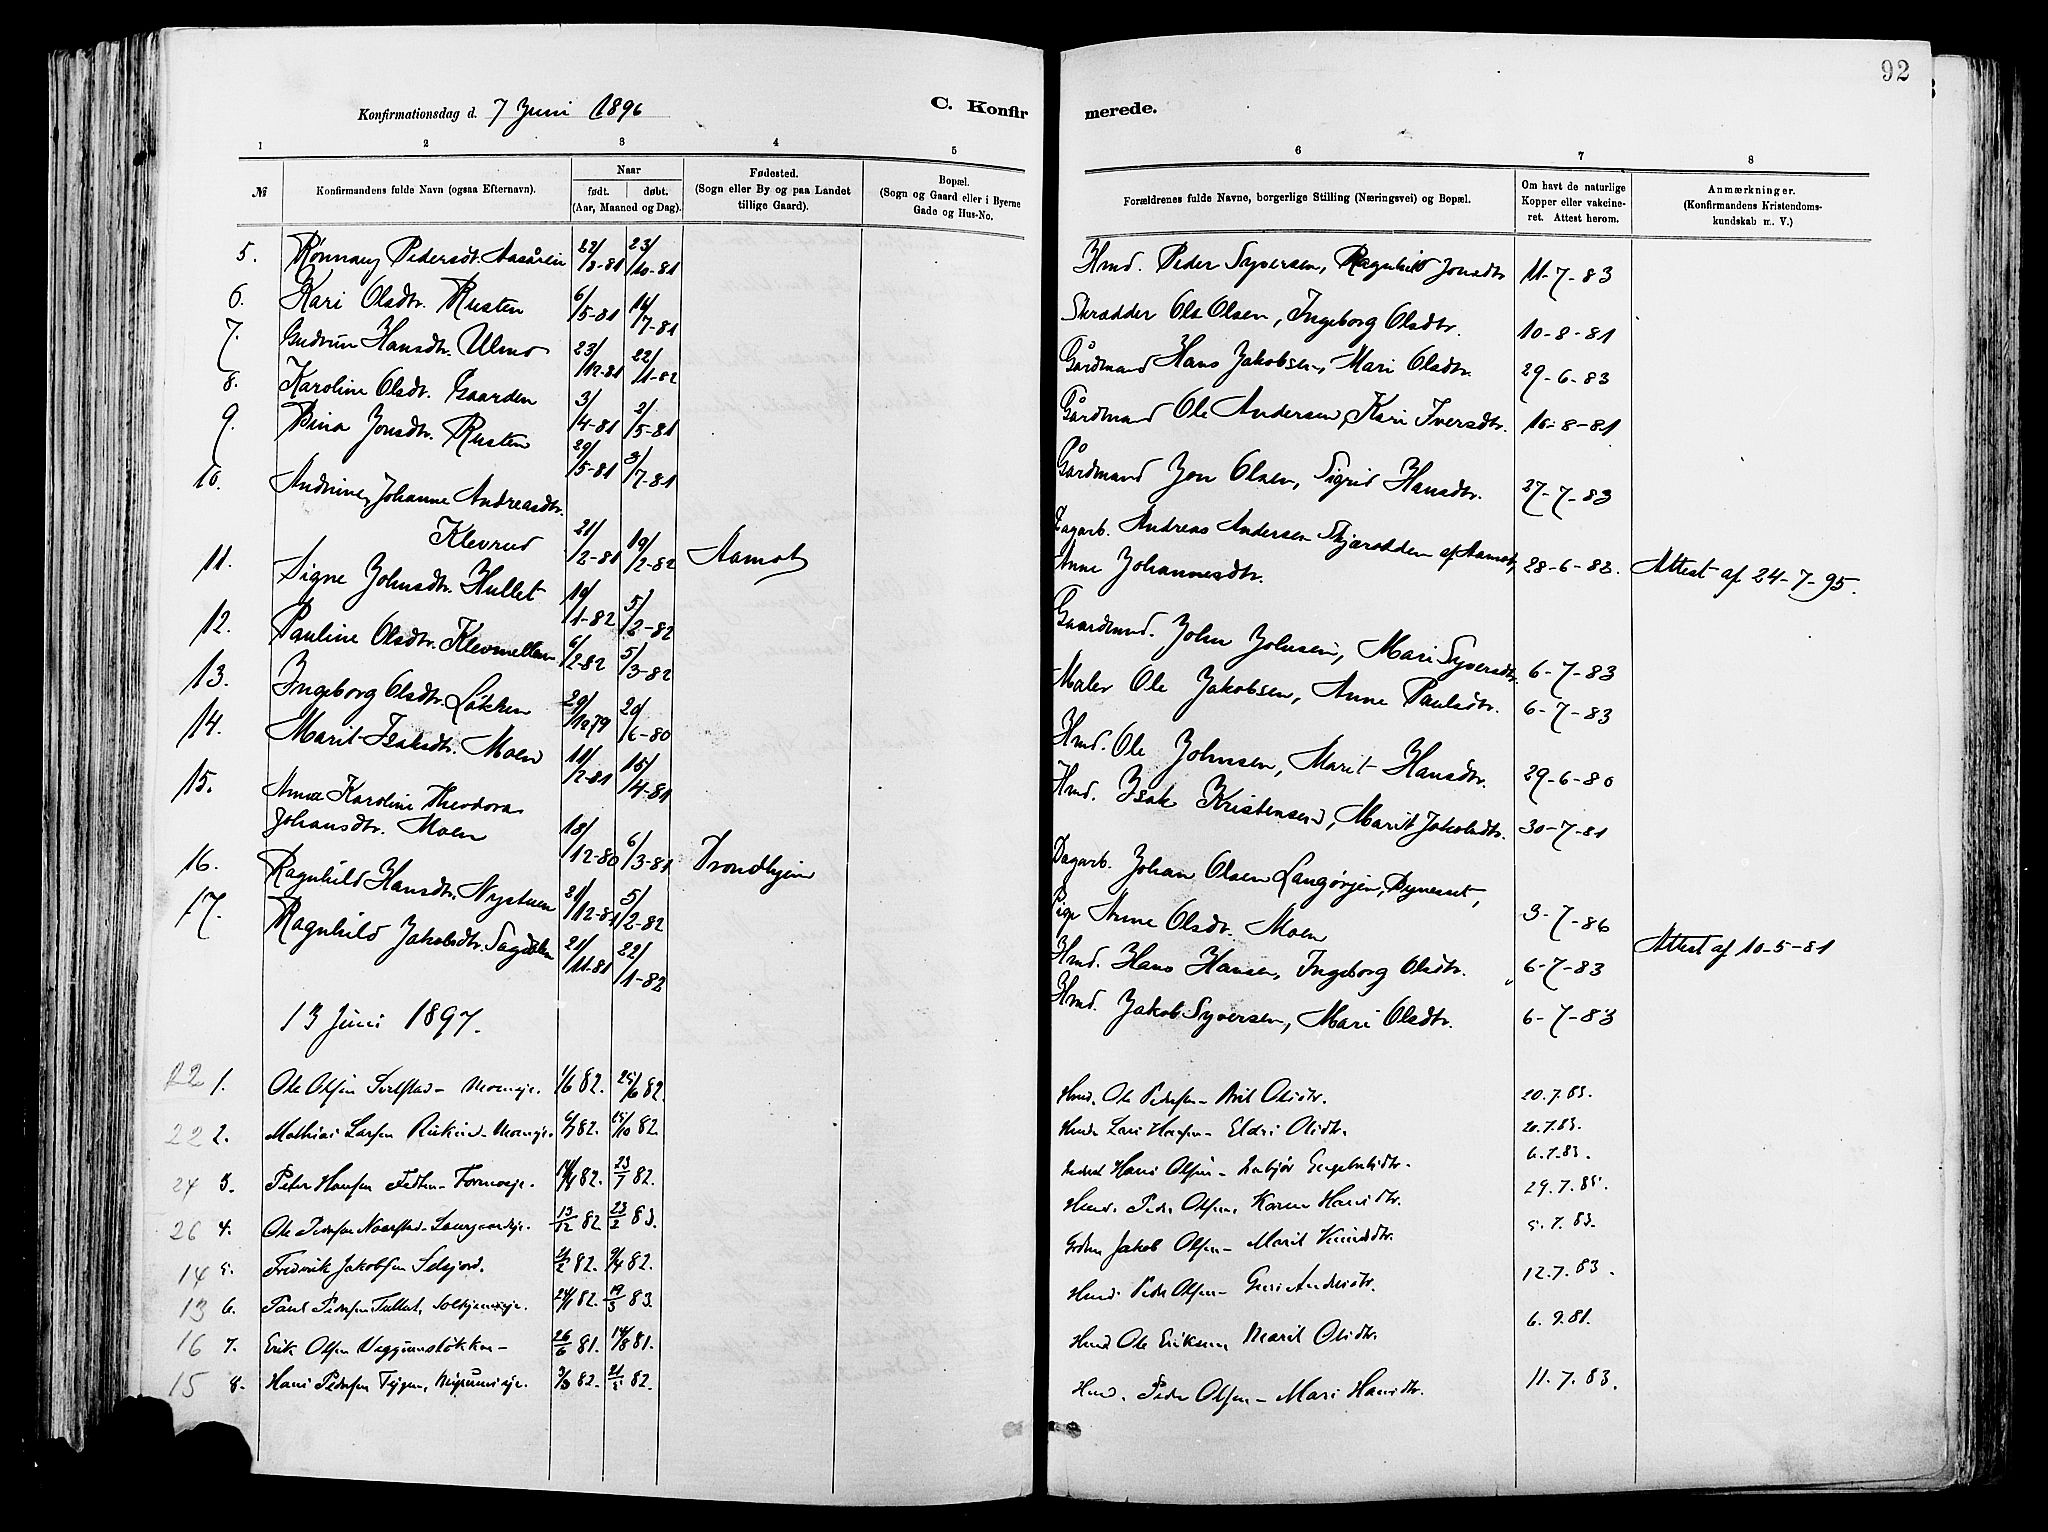 92
Konfirmationsdag d. 7 Juni 1896
C. Konfir
merede.
1 2 3 4 5 6 7 8
№
Konfirmandens fulde Navn (ogsaa Efternavn).
Naar
født. døbt.
(Aar, Maaned og Dag).
Fødested.
(Sogn eller By og paa Landet
tillige Gaard).
Bopæl.
(Sogn og Gaard eller i Byerne
Gade og Hus-No.
Forældrenes fulde Navne, borgerlige Stilling (Næringsvei) og Bopæl.
Om havt de naturlige
Kopper eller vakcine-
ret. Attest herom.
Anmærkninger.
(Konfirmandens Kristendoms-
kundskab m. V.)
5. Rønnaug Pedersdt. Aasåren 23/10-81 Hmd. Peder Syversen, Ragnhild Jonsdtr 11-7-83
6. Kari Olsdtr. Rusten 6/5-81 /7-81 Skrædder Ole Olsen, Ingeborg Olsdtr. 10-8-81
7. Gudrun Hansdtr. Ulmo 23/12-81 22/1-82 Gårdmand Hans Jakobsen, Mari Olsdtr. 29-6-83
8. Karoline Olsdt. Gaarden 3/4-81 2/5-81 Gårdmand Ole Andersen, Kari Iversdtr. 16-8-81
9. Jonsdtr. Rusten 29/5-81 3/7-81 Gårdmand Jon Olsen, Sigrid Hansdtr. 27-7-83
10. Andrine Johanne Andreasdtr.
Klevrud 21/2-81 19/2-82 Aamot Dagarb. Andreas Andersen Skjæradden af Aamot,
Anne Johannesdtr. 28-6-83. Attest af 24-7-95.
11. Signe Johnsdtr. Hullet 19/1-82 5/2-82 Gaardmd. John Johnsen, Mari Syversdtr. 6-7-83
12. Pauline Olsdtr. Klevmellem 6/2-82 5/3-82 Maler Ole Jakobsen, Anne Paulsdtr. 6-7-83
13. Ingeborg Olsdtr. Løkken 29/ 79 20/6-80 Hmd. Ole Johnsen, Marit Hansdtr. 29-6-80
14. Marit Isaksdtr. Moen 11/2-81 15/4-81 Hmd. Isak Kristensen, Marit Jakobsdtr. 30-7-81
15. Anna Karoline Theodora
Johansdtr. Moen 18/12-80 6/3-81 Trondhjem Dagarb. Johan Olsen Langørjen, Bynesset,
Pige Anne Olsdtr. Moen 3-7-86
16. Ragnhild Hansdtr. Nystuen 21/12-81 5/2-82 Hmd. Hans Hansen, Ingeborg Olsdtr. 6-7-83 Attest af 10-5-81
17. Ragnhild Jakobsdtr. Sagdalen 21/11-81 22/1-82 Hmd. Jakob Syversen, Mari Olsdtr. 6-7-83
13 Juni 1897.
22 1. Ole Olsen 1/6 82. 25/6 82. Hmd. Ole Pedersen - Olsdtr. 20.7.83.
22 2. Mathias Larsen 82. 15/10 82 Hmd. Lars Hansen - Eldri Olsdtr. 20.7.83.
24 3. Peter Hansen 14/4 82. 23/7 82. Hans Olsen - Engebretsdtr. 6.7.83.
26 4. Ole Pedersen 13/12 82 23/2 83. Hmd. Peder Olsen, Karen Hansdtr. 29.7.85.
14 5. Fredrik Jakobsen Selsjord. /2 82. 9/4 82. Jakob Olsen - Marit 5.7.83.
13 6. Paul Pedersen 82. 19/3 83. Hmd. Peder Olsen - Guri Andersdtr. 12.7.83.
16 7. Erik Olsen Veggumsløkken - 26/6 81. 14/8 81. Hmd Ole Eriksen, Marit Olsdtr. 6.9.81.
15 8. Hans Pedersen 82. 21/5 82. Hmd. Peder Olsen - Mari Hansdtr. 11.7.83.